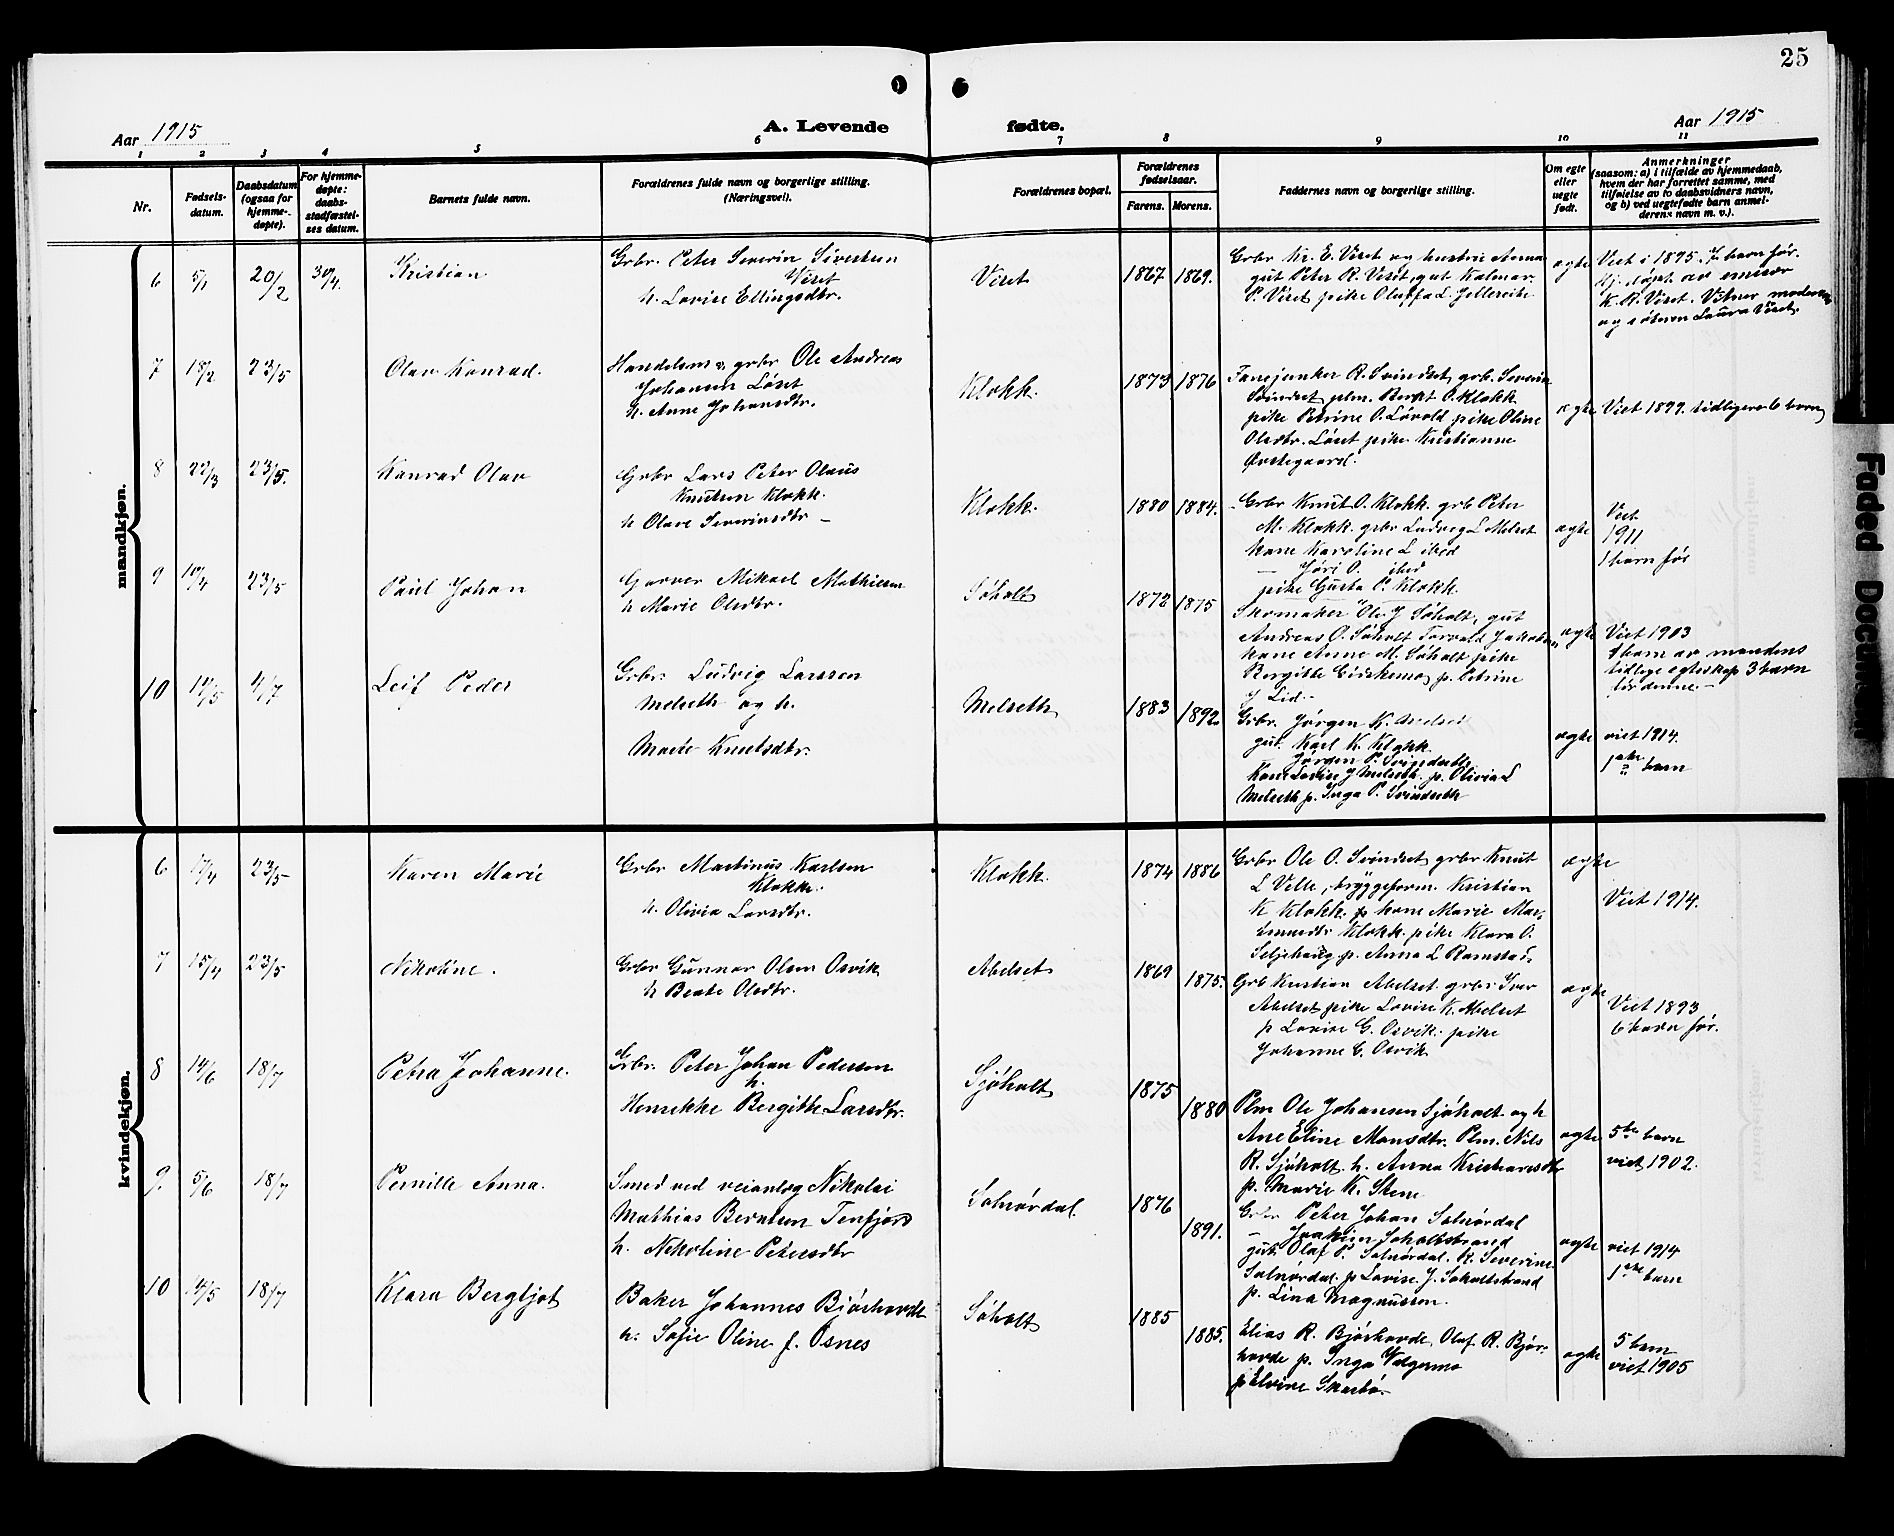 25
Aar 1915
A. Levende fødte.
Aar 1915
1 2 3 4 5 6 7 8 9 10 11
Nr.
Fødsels-
datum.
Daabsdatum
(ogsaa for
hjemme-
døpte).
For hjemme-
døpte:
daabs-
stadfæstel-
ses datum.
Barnets fulde navn.
Forældrenes fulde navn og borgerlige stilling.
(Næringsvei).
Forældrenes bopæl.
Forældrenes
fødselsaar.
Farens. Morens.
Faddernes navn og borgerlige stilling.
Om egte
eller
uegte
født.
Anmerkninger
(saasom: a) i tilfælde av hjemmedaab,
hvem der har forrettet samme, med
tilføielse av to daabsvidners navn,
og b) ved uegtefødte barn anmel-
derens navn m. v.).
mandkjøn.
6 5/1 20/2 30/4. Kristian
Grbr. Peter Severin Sivertsen
Viset
h. Lovise Ellingsdtr.
Viset 1867 1869.
Grbr Kr. E. Viset og hustru Anna
gut Peter R. Viset, gut Kalmar
P. Viset pike Oluffa L. Jellereite
ægte
Viet i 1895. 7 barn før.
Hj. døpt av emisær
K. R. Viset. Vitner moderen
og søsteren Laura Viset.
7 18/2 23/5 Olav Konrad.
Handelsm. & grbr Ole Andreas
Johansen Løset
h. Anne Johansdtr.
Klokk. 1873 1876
Fanejunker R. Svindset, grb. Severin
Svindset, plm. Bernt O. Klokk
pike Petrine O. Løvold pike Oline
Olsdtr. Løset pike Kristianne
Ørstegaard.
ægte
Viet 1899. tidligere 6 barn
8 22/3 23/5. Konrad Olav
Grbr Lars Peter Olaus
Knutsen Klokk.
h Olave Severinsdtr
Klokk. 1880 1884.
Grbr Knut O. Klokk. grb Peter
M. Klokk. grbr Ludvig L Melset
kone Karoline L ibid
— Jøri O. ibid
pike Gusta P. Klokk.
ægte
Viet
1911
1 barn før
9 10/4 23/5 Paul Johan
Garver Mikael Mathiesen
h Marie Olsdtr.
Søholt 1872 1875
Skomaker Ole J Søholt, gut
Andreas O. Søholt Torvald Jakobsen
kone Anne M. Søholt pike
Bergitte Gidskemo, p. Petrine
J Lid.
ægte
Viet 1903
1 barn av mandens
tidlige egteskap 3 barn
før denne.
10 12/5 4/7 Leif Peder
Grbr. Ludvig Larssen
Melseth og h.
Marte Knutsdtr.
Melseth 1883 1892
Grbr. Jørgen K.
gut. Karl K. Klokk.
Jørgen P. Svindseth
Kone Lovise J Melseth. p. Olivia L
Melseth p. Inga P. Svindseth
ægte
viet 1914.
1ste barn
kvindekjøn.
6 17/4 23/5 Karen Marie
Grbr Martinus Karlsen
Klokk.
h. Olivia Larsdtr.
Klokk. 1874 1886
Grbr Ole O. Svindset, grbr Knut
L Velle, bryggeform. Kristian
K Klokk. kone Marie
Klokk. pike Klara O.
Seljehaug p. Anna L Ramstad.
ægte
Viet 1914.
7 15/4 23/5 Nikoline.
Grbr Gunnar Olsen Osvik
h Beate Olsdtr.
Abelset 1869 1875.
Grb Kristian Abelset. grbr Iver
Abelset, pike Lovise K. Abelset
p Lovise G. Osvik. pike
Johanne G. Osvik
ægte
Viet 1893
6 barn før.
8 14/6 18/7 Petra Johanne.
Grbr. Peter Johan Pedersen
h.
Henrikke Bergitte Larsdtr.
Sjøholt 1875 1880
Plm Ole Johansen Sjøholt og h
Ane Eline Monsdtr. Plm. Nils
R. Sjøholt. h. Anna Kristiansdtr
p. Marie K. Stene
ægte
5te barn
viet 1902.
9. 5/6 18/7 Pernille Anna.
Smed ved veianlæg Nikolai
Mathias Berntsen Tenfjord
h. Nikoline Petersdtr
Solnørdal. 1876 1891.
Grbr Peter Johan Solnørdal
— Joakim Søholtstrand
gut. Olaf P. Solnørdal. K. Severine
Solnørdal. p Lovise. J. Søholtstrand
p. Lina Magnussen.
ægte
viet 1914
1ste barn
10 14/5 18/7 Klara Bergljot
Baker Johannes Bjørhovde
h. Sofie Oline f. Osnes
Søholt 1885 1885.
Elias R. Bjørhovde, Olaf R. Bjør-
hovde p. Inga Valgermo
p Elvine Skarbø.
ægte
5 barn
viet 1905
Faded Document